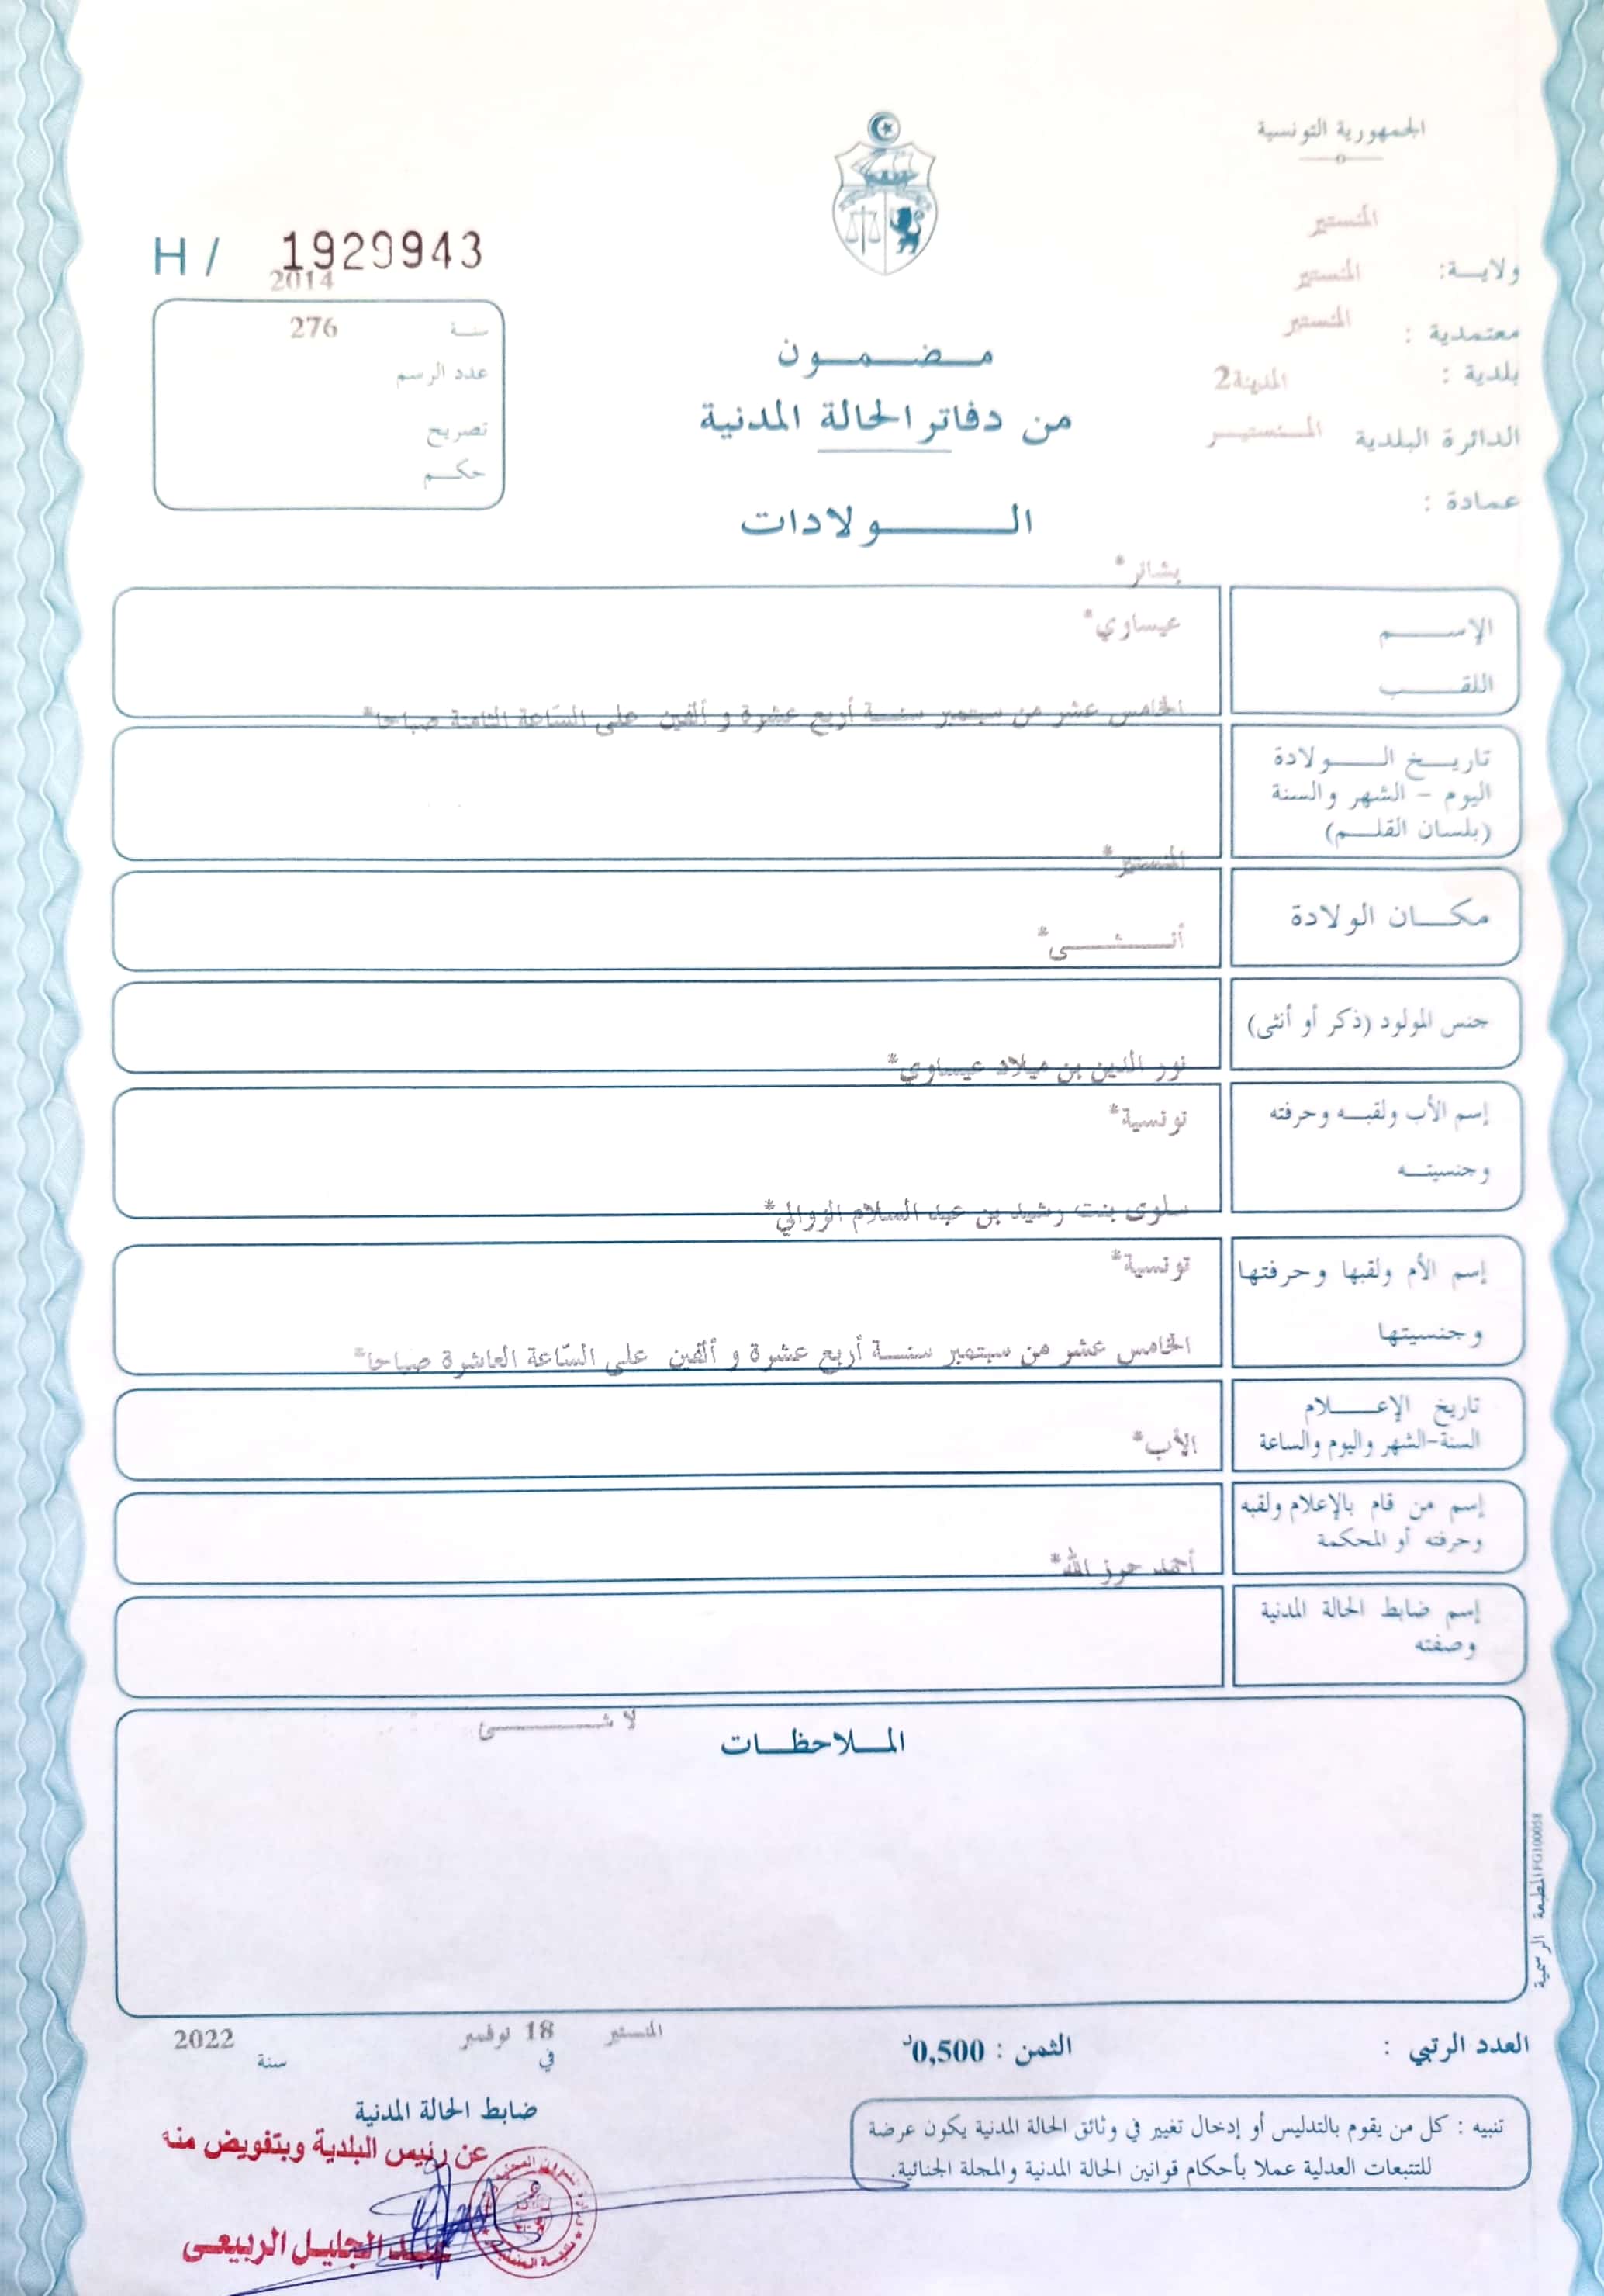 الجمهورية التونسية
المنستير
ولايــة: المنستير
معتمدية : المنستير
بلدية : المدينة2
الدائرة البلدية المـنستيــر
عمادة :
H / 1929943
2014
سنـة 276
عدد الرسم
تصريح
حكــم
مـضـمـون
من دفاتر الحالة المدنية
الــولادات
بشائر*
الإســـم عيساوي*
اللقـــب
الخامس عشر من سبتمبر سنــة أربع عشرة و ألفين على السّاعة الثامنة صباحا*
تاريــخ الــولادة
اليوم - الشهر والسنة
(بلسان القلــم)
المنستير*
مكــان الولادة
أنــثــى*
جنس المولود (ذكر أو أنثى)
نور الدين بن ميلاد عيساوي*
إسم الأب ولقبــه وحرفته
تونسية*
وجنسيتــه
سلوى بنت رشيد بن عبد السلام الزوالي*
إسم الأم ولقبها وحرفتها
تونسية*
وجنسيتها
الخامس عشر من سبتمبر سنــة أربع عشرة و ألفين على السّاعة العاشرة صباحا*
تاريخ الإعــلام
السنة-الشهر واليوم والساعة
الأب*
إسم من قام بالإعلام ولقبه
وحرفته أو المحكمة
أحمد حرز الله*
إسم ضابط الحالة المدنية
وصفته
لا شــــئ
المــلاحظــات
المطبعة الرسمية FG100058
العدد الرتبي :
الثمن : 0,500د
المنستير
في 18 نوفمبر
سنة 2022
ضابط الحالة المدنية
عن رئيس البلدية وبتفويض منه
عبـد الجليـل الربيعـى
تنبيه : كل من يقوم بالتدليس أو إدخال تغيير في وثائق الحالة المدنية يكون عرضة
للتتبعات العدلية عملا بأحكام قوانين الحالة المدنية والمجلة الجنائية.